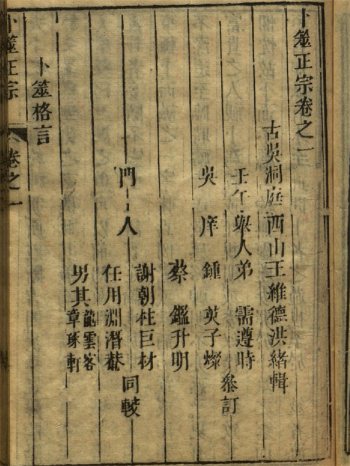 卜筮正宗卷之一
古吳洞庭西山王維德洪緒輯
壬午舉人弟 需遵時
吳庠鍾 英子燦 叅訂
蔡 鑑升明
門人 謝朝柱巨材
任用淵潛 同較
男其龍雲客
章琢軒
卜筮格言
卜筮正宗 卷之一